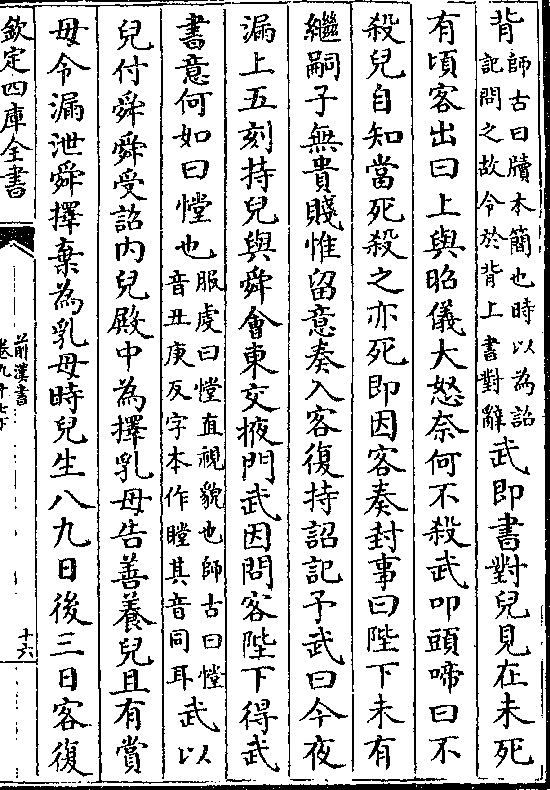 背師古曰牘木簡也時以為詔記問之故令於背上書對辭武即書對兒見在未死
有頃客出曰上與昭儀大怒奈何不殺武叩頭啼曰不
殺兒自知當死殺之亦死即因客奏封事曰陛下未有
繼嗣子無貴賤惟留意奏入客復持詔記予武曰今夜
漏上五刻持兒與舜會東交掖門武因問客陛下得武
書意何如曰憆也服虔曰憆直視貌也師古曰憆音丑庚反字本作瞠其音同耳武以
兒付舜舜受詔内兒殿中為擇乳母告善養兒且有賞
毋令漏泄舜擇棄為乳母時兒生八九日後三日客復
欽定四庫全書
前漢書
卷九十七下
十六